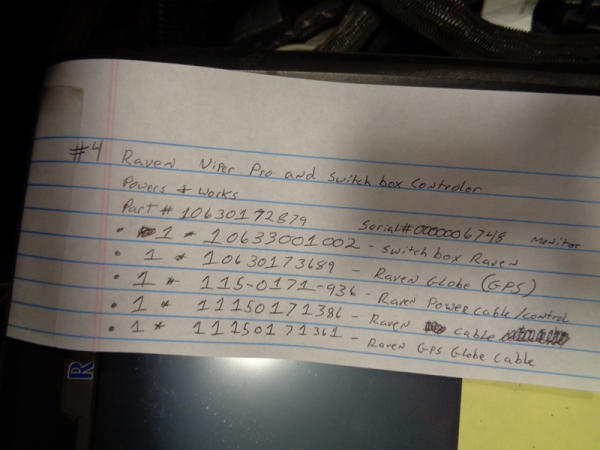 #4 Raven Viper Pro and switch box Controler
Powers & Works
Part # 10630172879 Serial# 0000006748 Monitor
• 1 * 10633001002 - switch box Raven
• 1 * 10630173689 - Raven Globe (GPS)
• 1 * 115-0171-936 - Raven Power Cable/control
• 1 * 11150171386 - Raven cable
• 1 * 11150171361 - Raven GPS Globe Cable
R